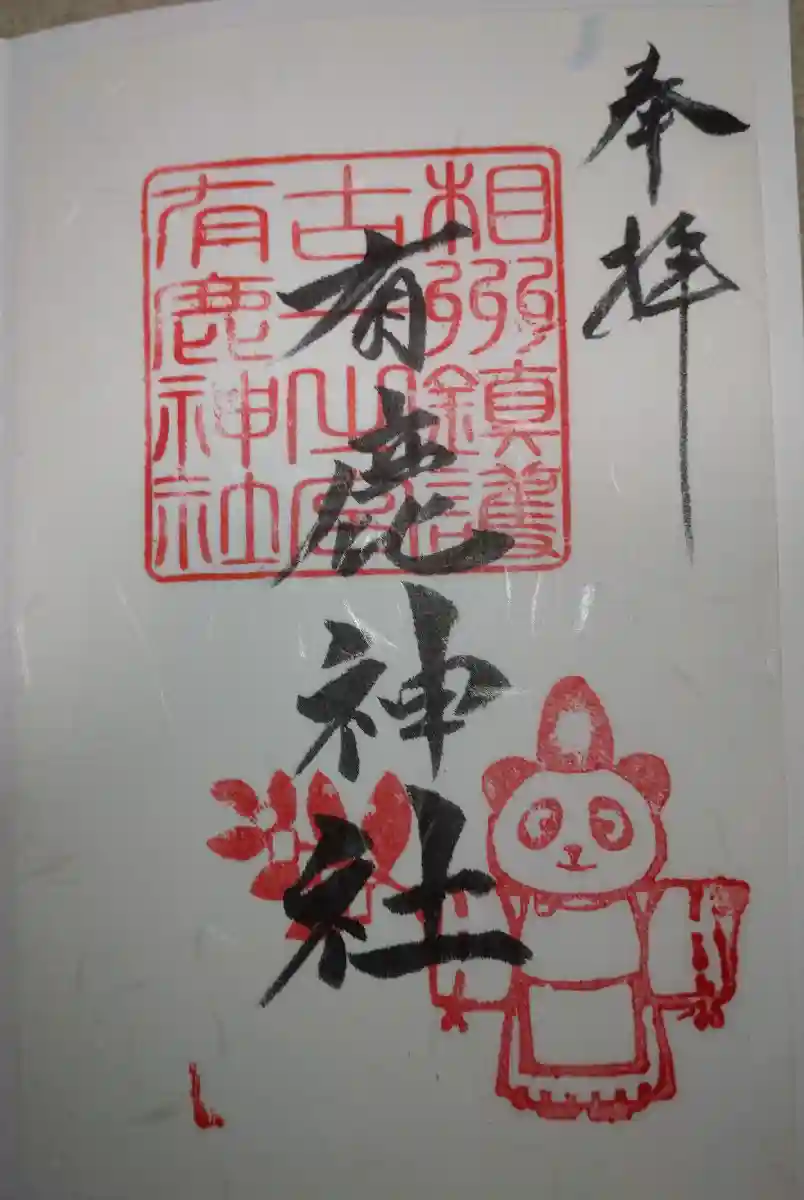 奉拝
有鹿神社
相州鎮護
古
有鹿神社